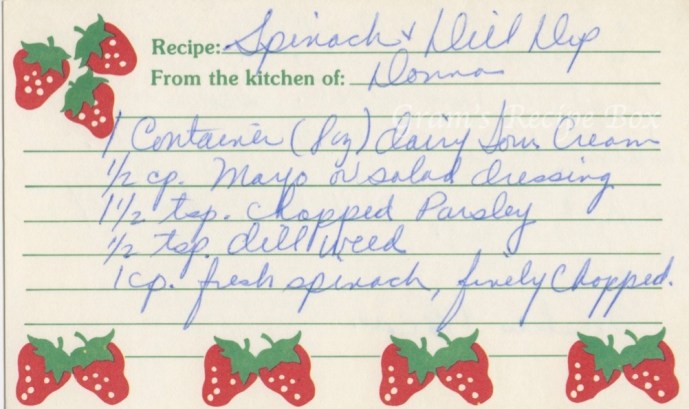 Recipe: Spinach & Dill Dip
From the kitchen of: Donna
Gram's Recipe Box
1 Container (8 oz) dairy Sour Cream
1/2 cp. Mayo or salad dressing
1 1/2 tsp. chopped Parsley
1/2 tsp. dill weed
1 cp. fresh spinach, finely chopped.